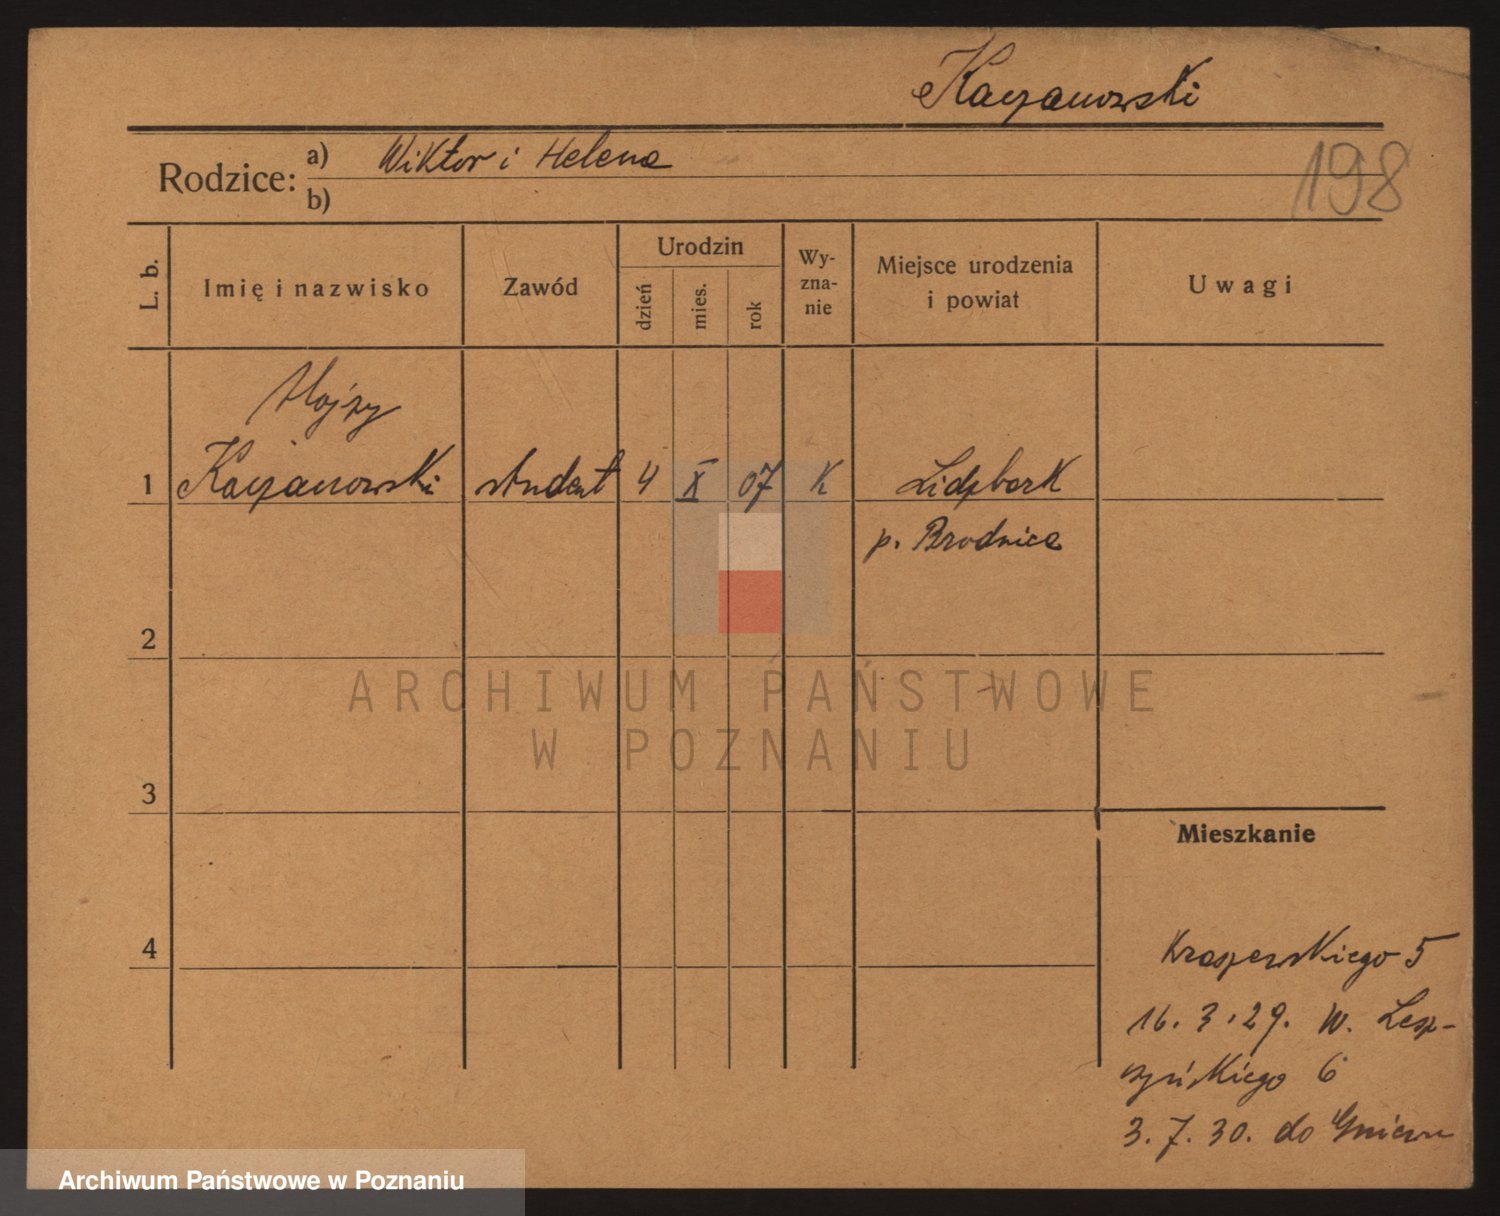 Kaczanowski
Rodzice: a) Wiktor i Helena
b)
198
L. b.
Imię i nazwisko
Zawód
Urodzin
dzień
mies.
rok
Wy-
zna-
nie
Miejsce urodzenia
i powiat
Uwagi
Alojzy
1 Kaczanowski student 4 X 07 K Lidzbark
p. Brodnica
2
3
4
Mieszkanie
Kraszewskiego 5
16. 3. 29. W. Lesz-
czyńskiego 6
3. 7. 30. do Gniewu
ARCHIWUM PAŃSTWOWE
W POZNANIU
Archiwum Państwowe w Poznaniu